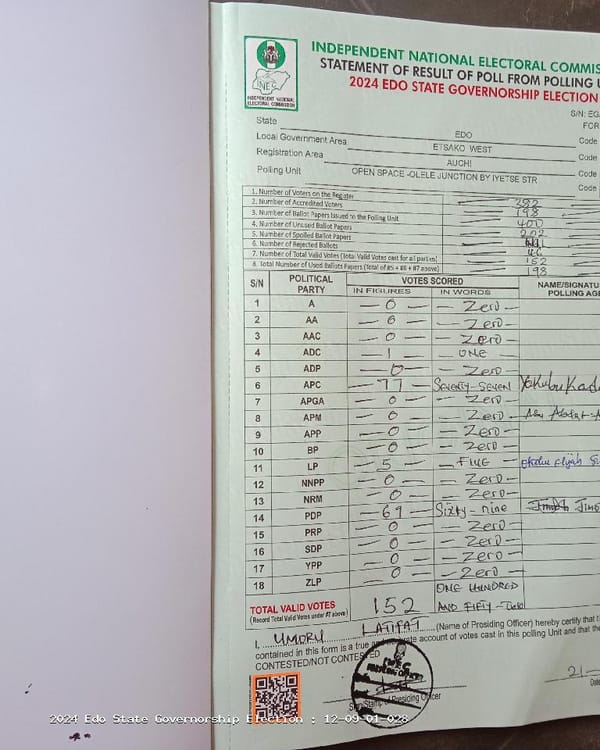 INDEPENDENT NATIONAL ELECTORAL COMMIS
STATEMENT OF RESULT OF POLL FROM POLLING U
2024 EDO STATE GOVERNORSHIP ELECTION
INEC
INDEPENDENT NATIONAL
ELECTORAL COMMISSION
S/N: EG
FOR
State EDO
Local Government Area ETSAKO WEST Code
Registration Area AUCHI Code
Polling Unit OPEN SPACE -OLELE JUNCTION BY IYETSE STR Code
Code
1. Number of Voters on the Register 392
2. Number of Accredited Voters 198
3. Number of Ballot Papers Issued to the Polling Unit 400
4. Number of Unused Ballot Papers 202
5. Number of Spoiled Ballot Papers
6. Number of Rejected Ballots 46
7. Number of Total Valid Votes (Total Valid Votes cast for all parties) 152
8. Total Number of Used Ballots Papers (Total of #5 + #6 + #7 above) 198
S/N POLITICAL PARTY VOTES SCORED NAME/SIGNATU
IN FIGURES IN WORDS POLLING AGE
1 A 0 Zero
2 AA 0 Zero
3 AAC 0 Zero
4 ADC 1 ONE
5 ADP 0 Zero
6 APC 77 Seventy-Seven Yakubu
7 APGA 0 Zero
8 APM 0 Zero
9 APP 0 Zero
10 BP 0 Zero
11 LP 5 FIVE
12 NNPP 0 Zero
13 NRM 0 Zero
14 PDP 69 Sixty-nine
15 PRP 0 Zero
16 SDP 0 Zero
17 YPP 0 Zero
18 ZLP 0 Zero
TOTAL VALID VOTES 152 ONE HUNDRED
(Record Total Valid Votes under #7 above) AND FIFTY-Two
I, UMORU LATIFAT (Name of Presiding Officer) hereby certify that t
contained in this form is a true account of votes cast in this polling Unit and that the
CONTESTED/NOT CONTESTED
INEC
PRESIDING OFFICER
Stamp of Presiding Officer
21
Date
2024 Edo State Governorship Election : 12-09-01-028